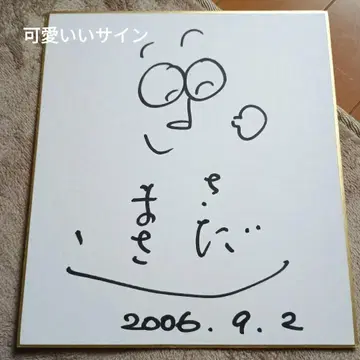 可愛いいサイン
さだ
まさし
2006.9.2